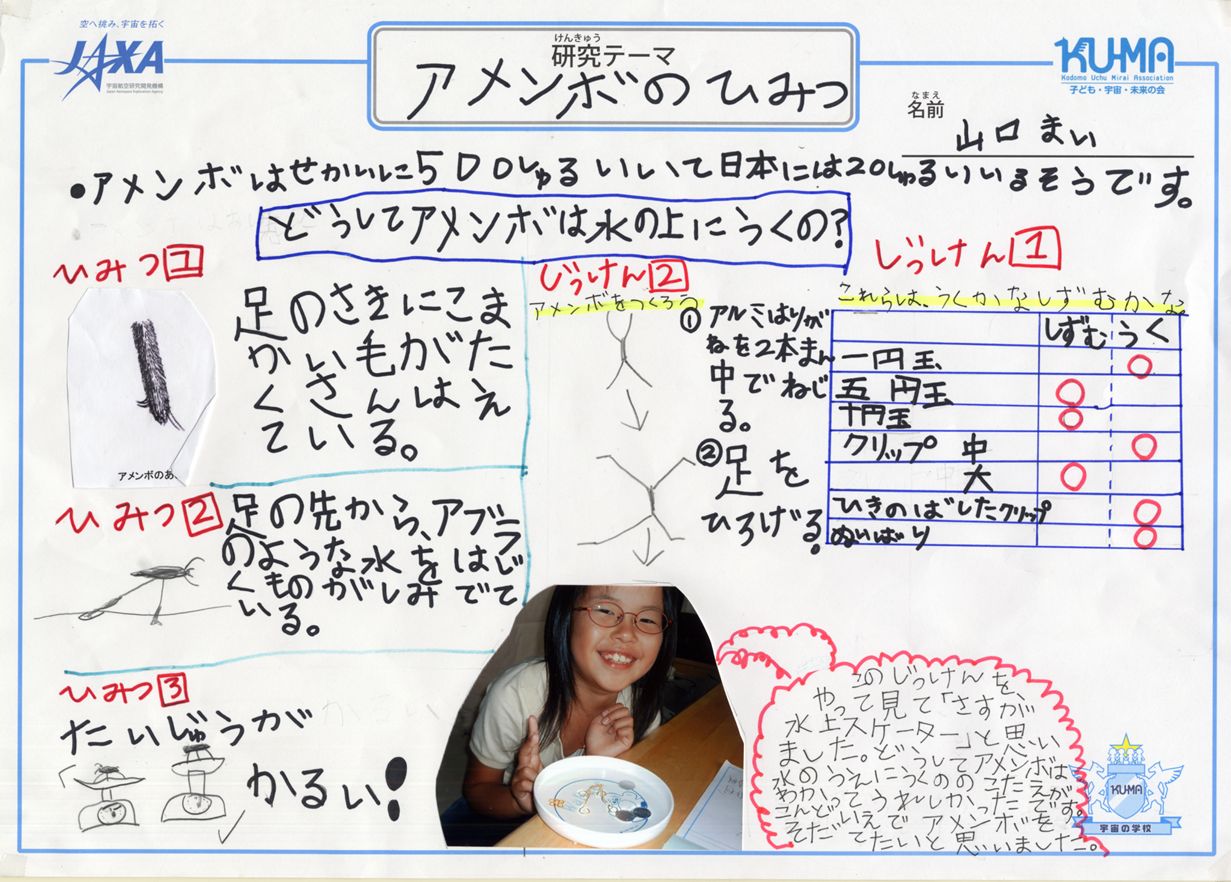 空へ挑み、宇宙を拓く
JAXA
宇宙航空研究開発機構
Japan Aerospace Exploration Agency
けんきゅう
研究テーマ
アメンボのひみつ
KU-MA
Kodomo Uchu Mirai Association
子ども・宇宙・未来の会
なまえ
名前
山口まい
●アメンボはせかいに500しゅるいいて日本には20しゅるいいるそうです。
どうしてアメンボは水の上にうくの?
ひみつ1
足のさきにこま
かい毛がた
くさんはえ
ている。
アメンボのあ
ひみつ2
足の先から、アブラ
のような水をはじ
くものがしみでて
いる。
ひみつ3
たいじゅうが
かるい!
じっけん2
アメンボをつくろう
①アルミはりが
ねを2本まん
中でねじ
る。
②足を
ひろげる。
じっけん1
これらは、うくかなしずむかな
しずむ うく
一円玉 ○
五円玉 ○
十円玉 ○
クリップ 中 ○
大 ○
ひきのばしたクリップ ○
ぬいばり ○
このじっけんを、
やって見て「さすが、
水上スケーター」と思い
ました。どうしてアメンボは
水のうえにうくののこたえが
わかってうれしかったです。
こんど
そだいえでアメンボを
てたいと思いました。
KUMA
宇宙の学校